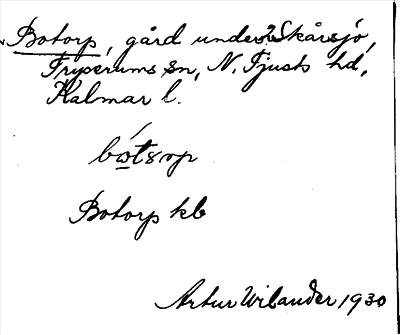 Botorp, gård under Skårsjö,
Tryserums sn, N. Tjusts hd,
Kalmar l.
Botorp kb
Artur Wilander 1930